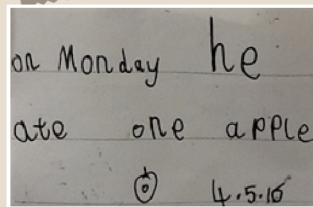 on Monday he
ate one apple
4.5.16